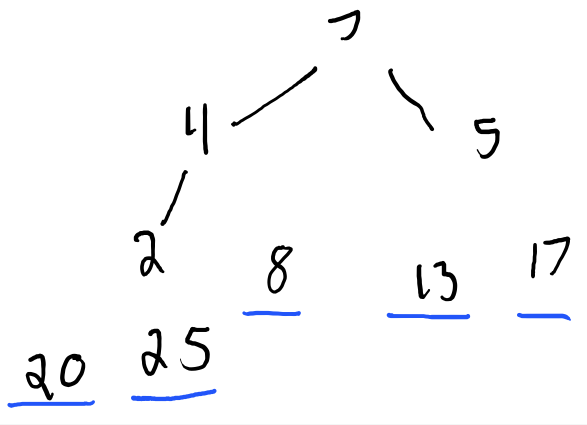 7
4 5
2 8 13 17
20 25